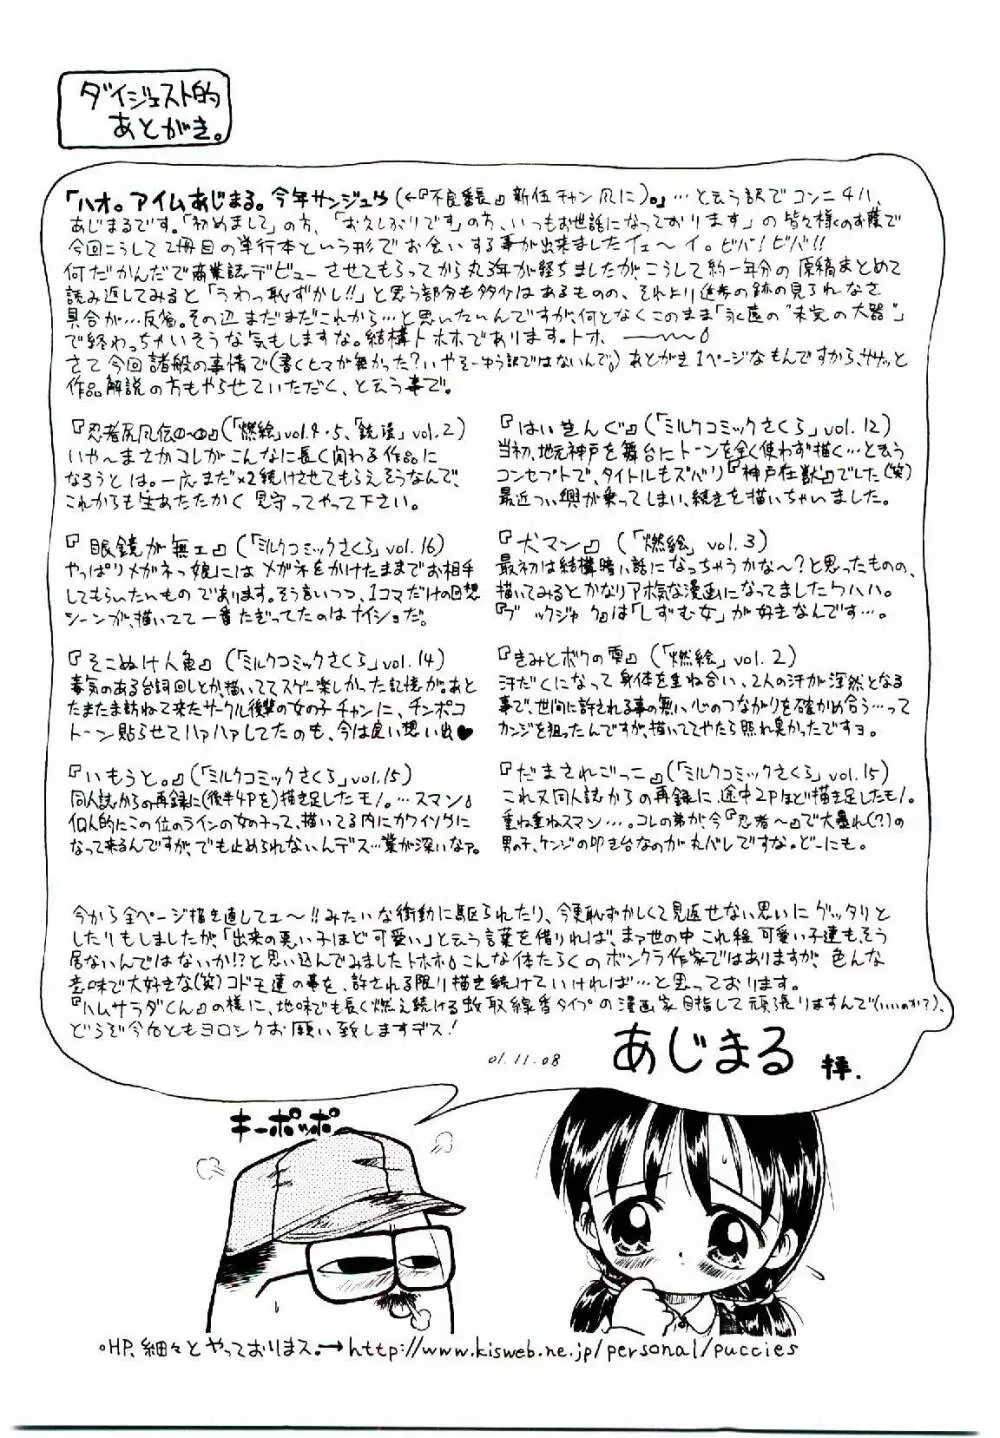 ダイジェスト的
あとがき。
「ハオ。アイムあじまる。今年サンジュウ(←『不良番長』新伍チャン風に)。」…と云う訳でコンニチハ、
あじまるです。「初めまして」の方、「お久しぶりです」の方、「いつもお世話になっております」の皆々様のお蔭で
今回こうして2冊目の単行本という形でお会いする事が出来ましたイェ〜イ。ビバ!ビバ!!
何だかんだで商業誌デビューさせてもらってから丸3年が経ちましたが、こうして約一年分の原稿まとめて
読み返してみると「うわっ恥ずかし!!」と思う部分も多少はあるものの、それより進歩の跡の見られなさ
具合が…反省。その辺まだまだこれから…と思いたいんですが、何となくこのまま「永遠の"未完の大器"」
で終わっちゃいそうな気もしますな。結構トホホであります。トホ
さて今回諸般の事情で(書くヒマが無かった?いやそーゆう訳ではないんで。)あとがき1ページなもんですから、ササッと
作品解説の方もやらせていただく、と云う事で。
(「燃絵」vol.4・5、「銃淫」vol.2)
いや〜まさかコレがこんなに長く関わる作品に
なろうとは。一応まだ×2続けさせてもらえそうなんで、
これからも生あたたかく見守ってやって下さい。
『眼鏡が無ェ』(「ミルクコミックさくら」vol.16)
やっぱりメガネっ娘にはメガネをかけたままでお相手
してもらいたいものであります。そう言いつつ、1コマだけの回想
シーンが、描いてて一番たぎってたのはナイショだ。
『そこぬけ人魚』(「ミルクコミックさくら」vol.14)
毒気のある台詞回しとか、描いててスゲー楽しかった記憶が。あと
たまたま訪ねて来たサークル後輩の女の子チャンに、チンポコ
トーン貼らせてハァハァしてたのも、今は良い想い出♥
『いもうと。』(「ミルクコミックさくら」vol.15)
同人誌からの再録に(後半4Pを)描き足したモノ。…スマン。
個人的にこの位のラインの女の子って、描いてる内にカワイソウに
なって来るんですが、でも止められないんデス…業が深いなァ。
『はいきんぐ』(「ミルクコミックさくら」vol.12)
当初、地元神戸を舞台にトーンを全く使わず描く…と云う
コンセプトで、タイトルもズバリ『神戸在獣』でした(笑)
最近つい興が乗ってしまい、続きを描いちゃいました。
『犬マン』(「燃絵」vol.3)
最初は結構暗い話になっちゃうかな〜?と思ったものの、
描いてみるとかなりアホ気な漫画になってましたワハハ。
は「しずむ女」が好きなんです…。
『きみとボクの雫』(「燃絵」vol.2)
汗だくになって身体を重ね合い、2人の汗が渾然となる
事で、世間に許される事の無い心のつながりを確かめ合う…って
カンジを狙ったんですが、描いててやたら照れ臭かったですヨ。
『だまされごっこ』(「ミルクコミックさくら」vol.15)
これ又同人誌からの再録に、途中2Pほど描き足したモノ。
重ね重ねスマン…。コレの弟が、今『忍者〜』で大暴れ(?)の
男の子、ケンジの叩き台なのが丸バレですな。どーにも。
今から全ページ描き直してェ〜!!みたいな衝動に駆られたり、今更恥ずかしくて見返せない思いにグッタリと
したりもしましたが、「出来の悪い子ほど可愛い」と云う言葉を借りれば、まァ世の中これ程可愛い子達も、そう
居ないんではないか!?と思い込んでみましたトホホ。こんな体たらくのボンクラ作家ではありますが、色んな
意味で大好きな(笑)コドモ達の事を、許される限り描き続けていければ…と思っております。
『ハムサラダくん』の様に、地味でも長く燃え続ける蚊取線香タイプの漫画家目指して頑張りますんで(いいのか?)、
どうぞ今後ともヨロシクお願い致しますデス!
01.11.08
あじまる 拝.
キーポッポ
。HP、細々とやっておりまス。→http://www.kisweb.ne.jp/personal/puccies